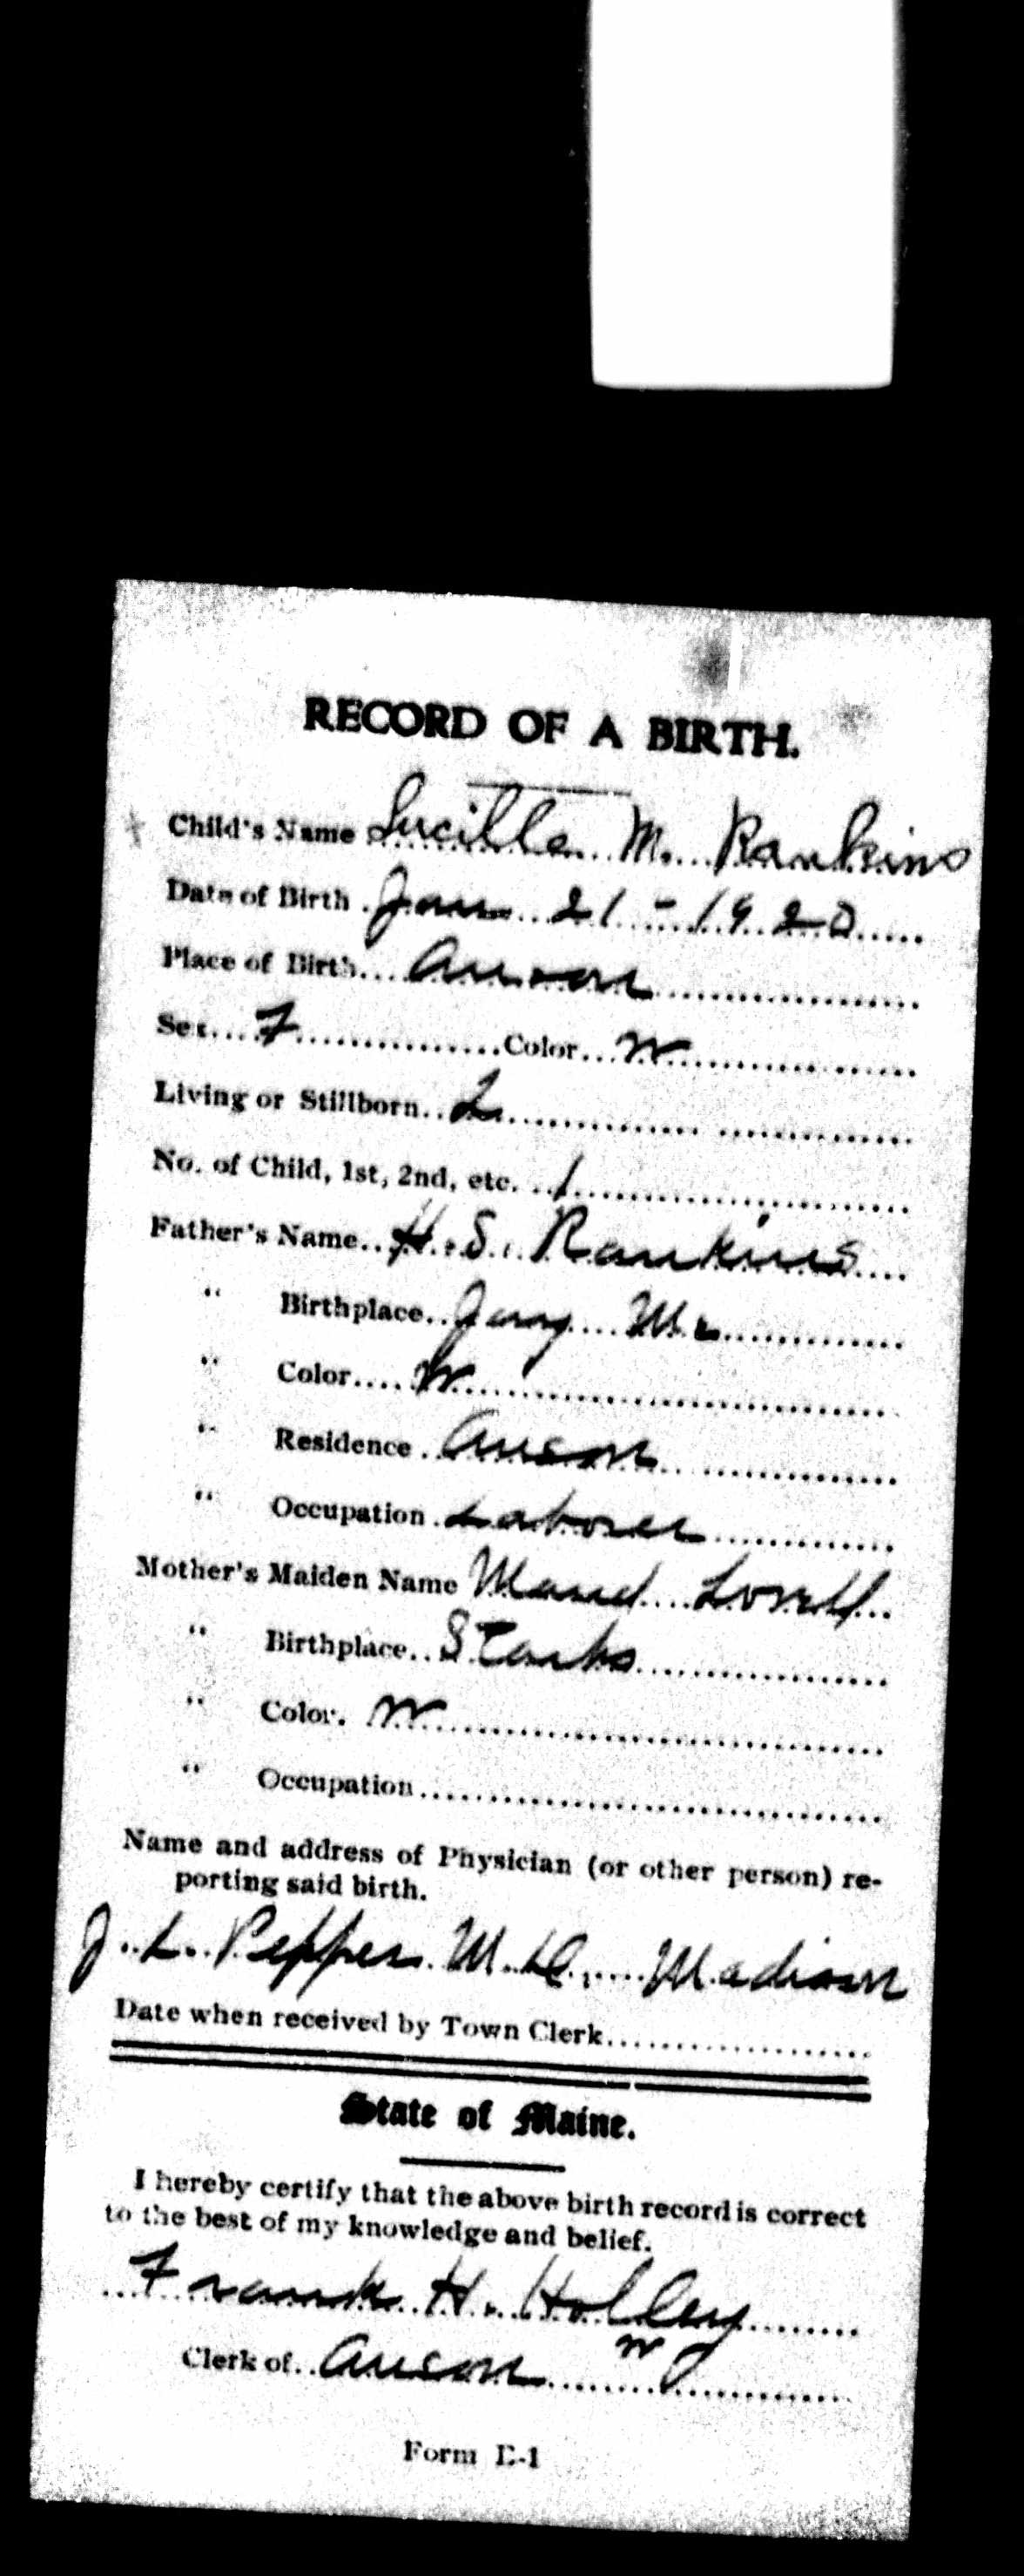 RECORD OF A BIRTH.
Child's Name Lucilla M. Rankins
Date of Birth Jan 21 - 1920
Place of Birth Anson
Sex F Color W
Living or Stillborn L
No. of Child, 1st, 2nd, etc. 1
Father's Name H. S. Rankins
" Birthplace Jay Me
" Color W
" Residence Anson
" Occupation Laborer
Mother's Maiden Name Maud Lovell
" Birthplace Starks
" Color. W
" Occupation
Name and address of Physician (or other person) re-
porting said birth.
J. L. Pepper M.D. Madison
Date when received by Town Clerk
State of Maine.
I hereby certify that the above birth record is correct
to the best of my knowledge and belief.
Frank H. Holley
Clerk of Anson
Form E-1